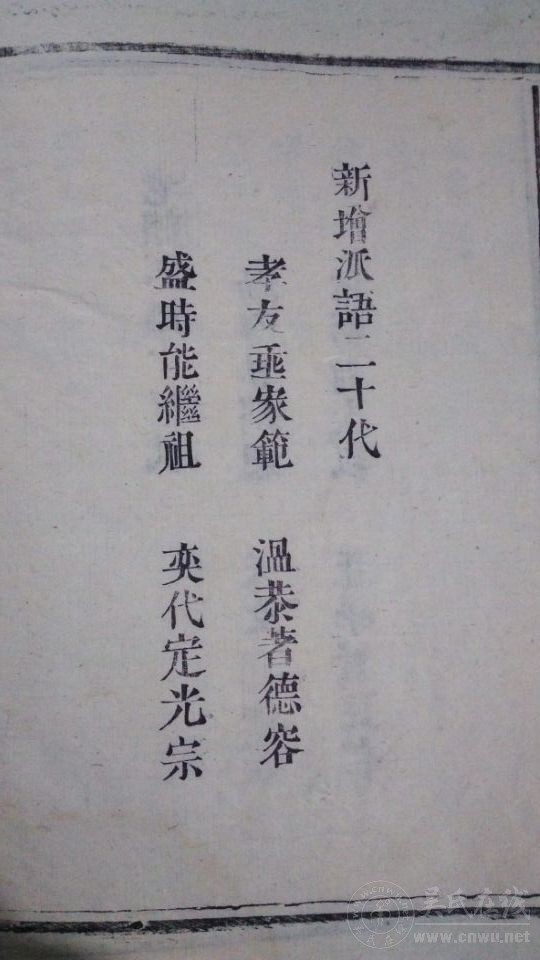 新增派語二十代
孝友垂家範 溫恭著德容
盛時能繼祖 奕代定光宗
吴氏在线
www.cnwu.net